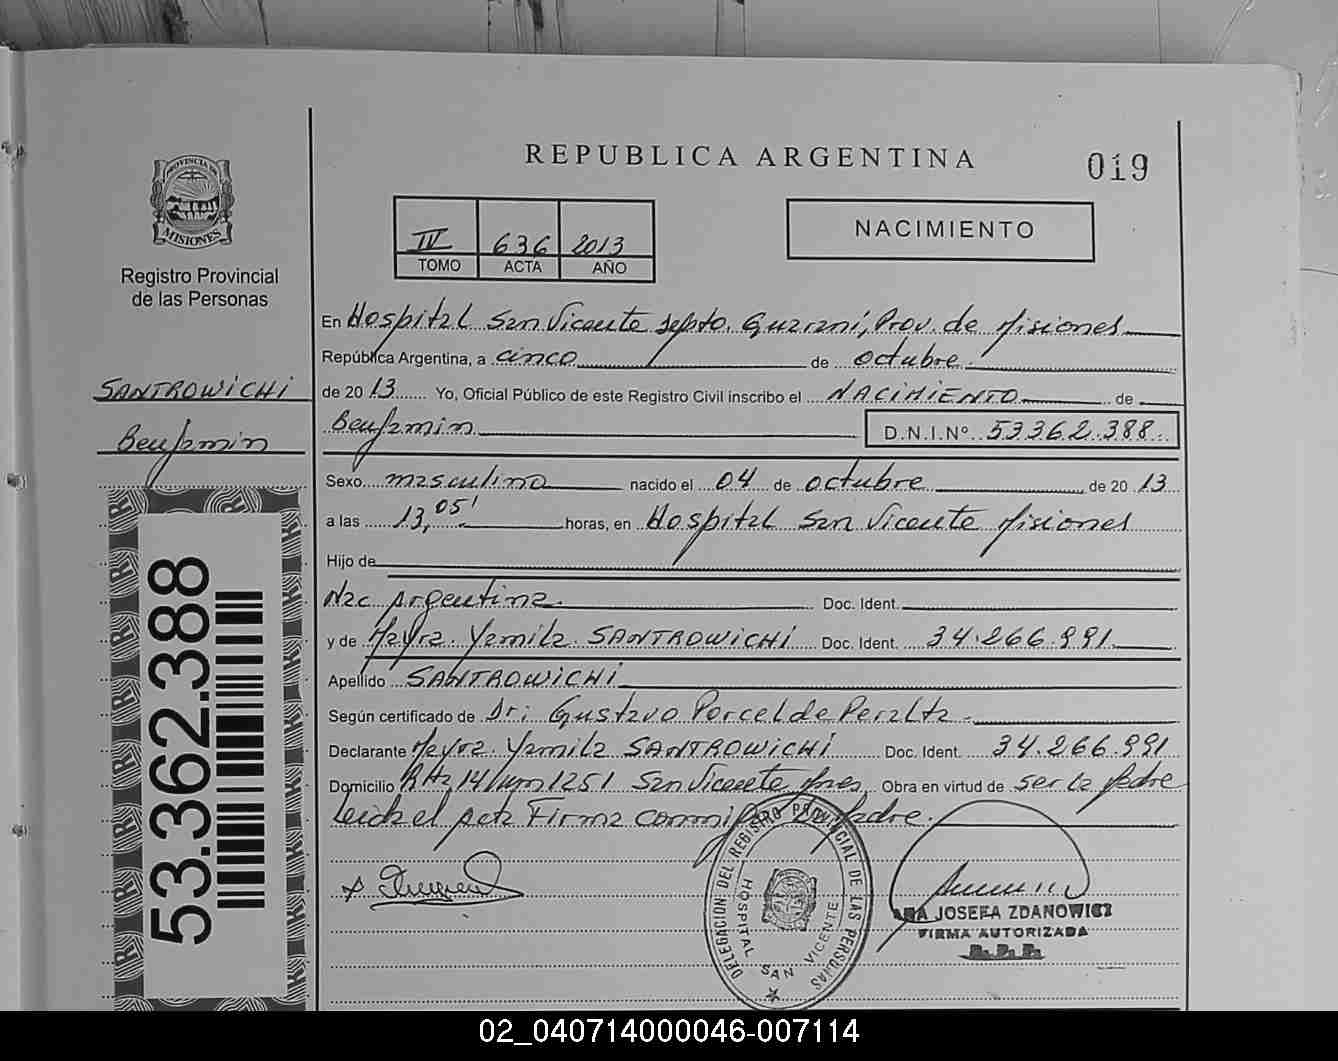 REPUBLICA ARGENTINA
019
PROVINCIA DE
MISIONES
Registro Provincial
de las Personas
IV 636 2013
TOMO ACTA AÑO
NACIMIENTO
En Hospital San Vicente Depto. Guarani, Prov. de Misiones
República Argentina, a cinco de octubre
SANTROWICHI
de 2013 Yo, Oficial Público de este Registro Civil inscribo el NACIMIENTO de
Benjamin
Benjamin D.N.I.Nº 53362.388
Sexo masculino nacido el 04 de octubre de 2013
a las 13,05' horas, en Hospital San Vicente Misiones
Hijo de
Nac Argentina Doc. Ident.
y de Mayra Yamila SANTROWICHI Doc. Ident. 34.266.991
Apellido SANTROWICHI
Según certificado de Dr: Gustavo Porcel de Peralta
Declarante Mayra Yamila SANTROWICHI Doc. Ident. 34.266.991
Domicilio Rta 14 km 1251 San Vicente Mnes Obra en virtud de ser la Madre
Leida el acta Firma conmigo la Madre.
53.362.388
DELEGACION DEL REGISTRO PROVINCIAL DE LAS PERSONAS
HOSPITAL SAN VICENTE
JOSEFA ZDANOWICZ
FIRMA AUTORIZADA
R. P. P.
02_040714000046-007114